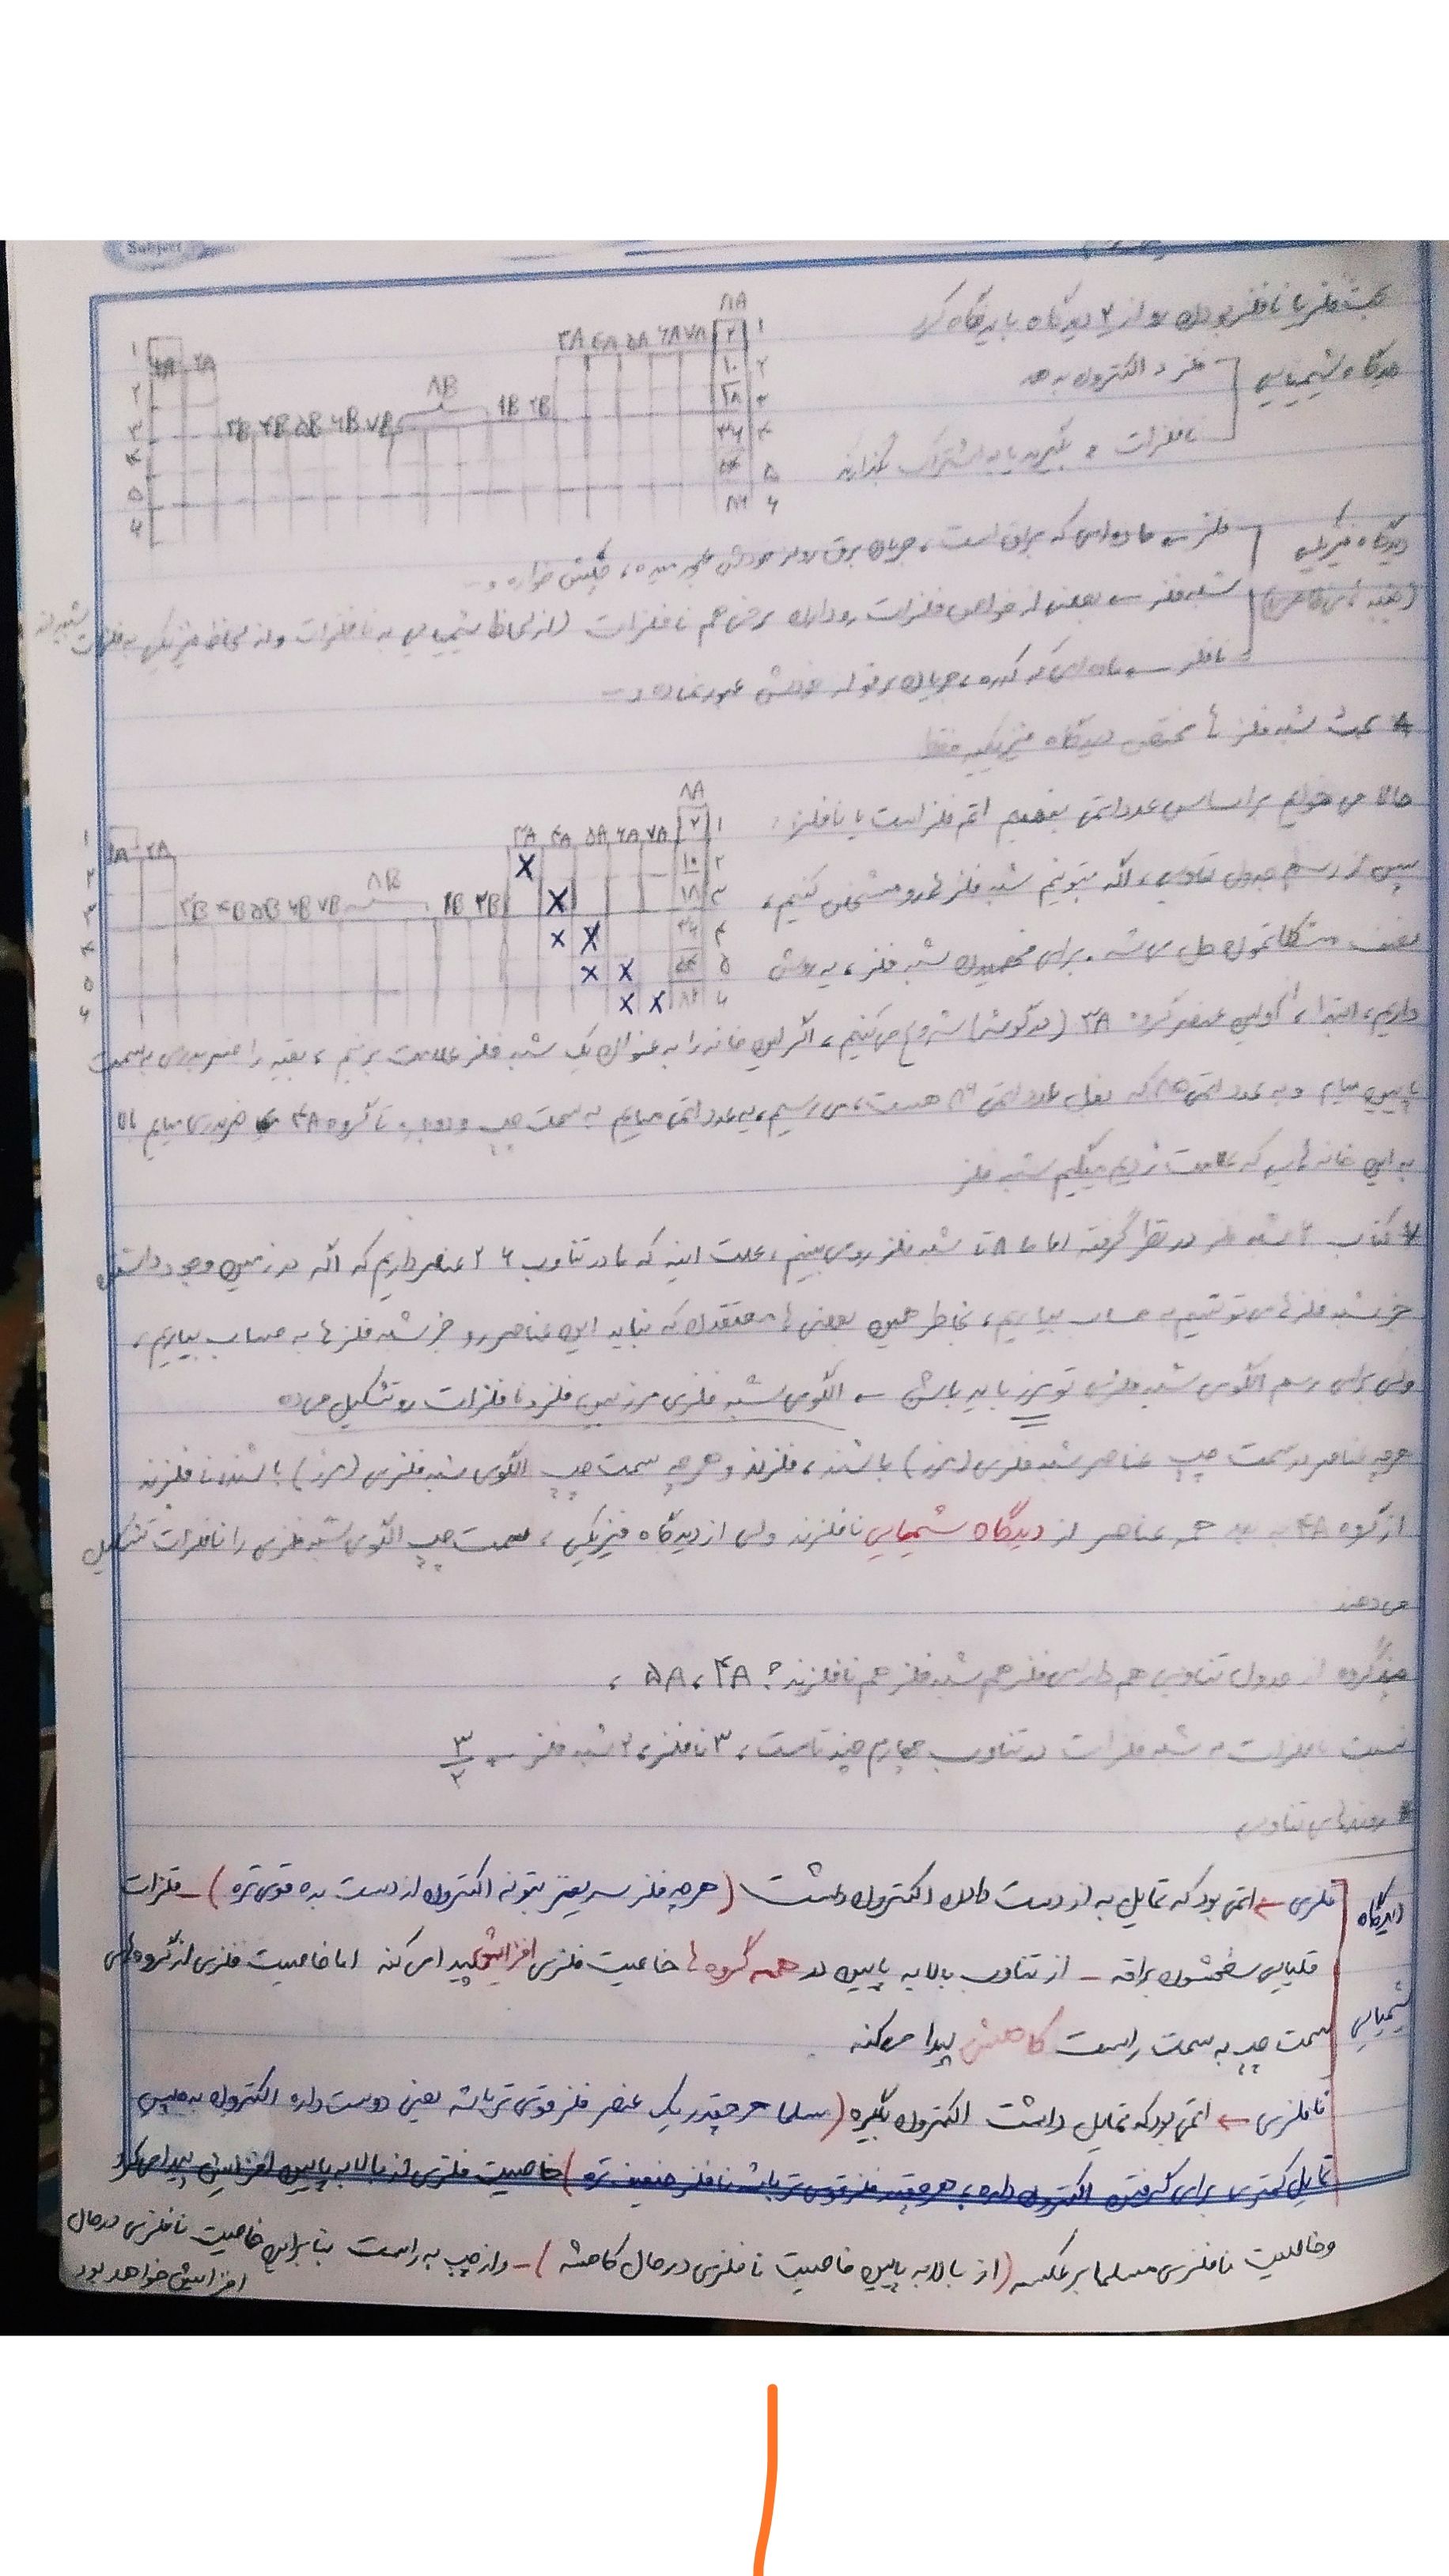 Subject
بحث فلز یا نافلز بودن رو از ۲ دیدگاه باید نگاه کرد
دیدگاه شیمیایی
فلز الکترون بده
نافلزات بگیره یا به اشتراک بگذاره
۱A ۲A ۳B ۴B ۵B ۶B ۷B ۸B ۱B ۲B ۳A ۴A ۵A ۶A ۷A ۸A
۱ ۲ ۳ ۴ ۵ ۶
۲ ۱۰ ۱۸ ۳۶ ۵۴ ۸۶
۱ ۲ ۳ ۴ ۵ ۶
دیدگاه فیزیکی
فلز ← ماده‌ای که براق است، جریان برق رو از خودش عبور میده، چکش خواره و ...
شبه فلز ← بعضی از خواص فلزات رو داران برخی هم نافلزات (از لحاظ شیمیایی به نافلزات و از لحاظ فیزیکی به فلزات شبیه‌اند
نافلز ← ماده‌ای که کدره، جریان برقو از خودش عبور نمیده و ...
* بحث شبه فلز ها مختص دیدگاه فیزیکیه فقط
حالا می خوایم براساس عدد اتمی بفهمیم اتم فلز است یا نافلز:
پس از رسم جدول تناوبی، اگه بتونیم شبه فلز ها رو مشخص کنیم،
نصف مشکلاتمون حل می شه. برای فهمیدن شبه فلز، یه روش
۱A ۲A ۳B ۴B ۵B ۶B ۷B ۸B ۱B ۲B ۳A ۴A ۵A ۶A ۷A ۸A
۱ ۲ ۳ ۴ ۵ ۶
۲ ۱۰ ۱۸ ۳۶ ۵۴ ۸۶
۱ ۲ ۳ ۴ ۵ ۶
X
X
X X
X X
X X
داریم، ابتدا، اولین عنصر گروه ۳A (در گوشه) شروع می‌کنیم، اگر این خانه را به عنوان یک شبه فلز علامت بزنیم، بقیه را ضربدری به سمت
پایین میایم و به عدد اتمی ۸۵ که بغل عدد اتمی ۸۶ هست، می رسیم، یه عدد اتمی میایم به سمت چپ و دوباره تا گروه ۴A ضربدری میایم بالا
به این خانه هایی که علامت زدیم میگیم شبه فلز
* کتاب ۶ شبه فلز در نظر گرفته اما ما ۸ تا شبه فلز رو می بینیم، علت اینه که ما در تناوب ۶ ۲ عنصر داریم که اگه در زمین وجود داشتن
جز شبه فلزها می تونستیم به حساب بیاریم، بخاطر همین بعضی ها معتقدن که نباید این عناصر رو جز شبه فلز ها به حساب بیاریم،
ولی برای رسم الگوی شبه فلزی تو مرز باید باشن ← الگوی شبه فلزی مرز بین فلز و نافلزات رو تشکیل می ده
هرچه عناصر در سمت چپ عناصر شبه فلزی (مرز) باشند، فلزند و هرچه سمت چپ الگوی شبه فلزی (مرز) باشند، نافلزند
از گروه ۴A به بعد همه عناصر از دیدگاه شیمیایی نافلزند ولی از دیدگاه فیزیکی، سمت چپ الگوی شبه فلزی را نافلزات تشکیل
می دهند
چند گروه از جدول تناوبی هم دارای فلز هم شبه فلز هم نافلزند؟ ۴A، ۵A،
نسبت نافلزات به شبه فلزات در تناوب چهارم چند تاست، ۳ نافلز، ۲ شبه فلز ← ۳/۲
* روندهای تناوبی
دیدگاه شیمیایی
فلزی ← اتمی بود که تمایل به از دست دادن الکترون داشت (هرچه فلز سریعتر بتونه الکترون از دست بده قوی تره) - فلزات
قلیایی سطحشون براقه - از تناوب بالا به پایین در همه گروه ها خاصیت فلزی افزایش پیدا می کنه اما خاصیت فلزی از گروه های
سمت چپ به سمت راست کاهش پیدا می کنه
نافلزی ← اتمی بود که تمایل داشت الکترون بگیره (مسلما هرچقدر یک عنصر فلز قوی تر باشه یعنی دوست داره الکترون بده پس
تمایل کمتری برای گرفتن الکترون داره، هرچقدر فلز قوی تر باشه نافلز ضعیف تره) خاصیت فلزی از بالا به پایین افزایش پیدا می کرد
و خاصیت نافلزی مسلما برعکسه (از بالا به پایین خاصیت نافلزی در حال کاهشه) - و از چپ به راست بنابراین خاصیت نافلزی در حال
افزایش خواهد بود